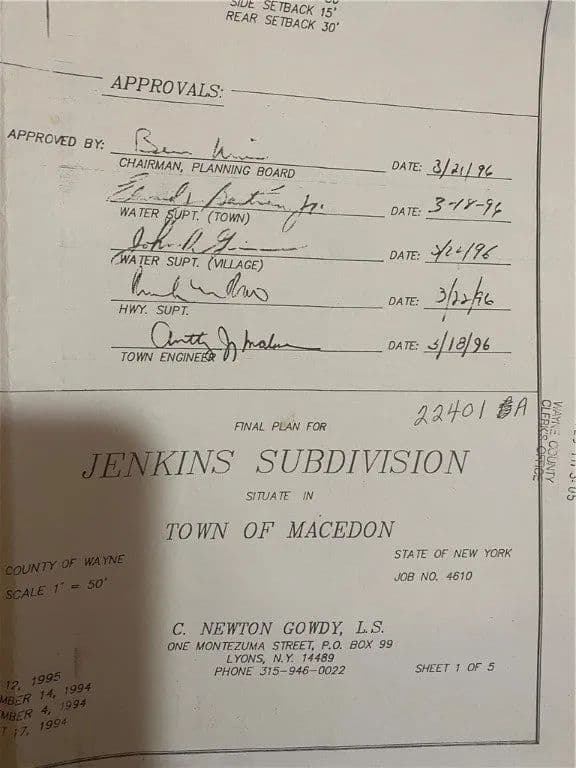 SIDE SETBACK 15'
REAR SETBACK 30'
APPROVALS:
APPROVED BY:
CHAIRMAN, PLANNING BOARD
DATE: 3/21/96
WATER SUPT. (TOWN)
DATE: 3-18-96
WATER SUPT. (VILLAGE)
DATE:
HWY. SUPT.
DATE: 3/22/96
TOWN ENGINEER
DATE: 3/18/96
22401 A
WAYNE COUNTY
CLERK'S OFFICE
FINAL PLAN FOR
JENKINS SUBDIVISION
SITUATE IN
TOWN OF MACEDON
COUNTY OF WAYNE
STATE OF NEW YORK
SCALE 1" = 50'
JOB NO. 4610
C. NEWTON GOWDY, L.S.
ONE MONTEZUMA STREET, P.O. BOX 99
LYONS, N.Y. 14489
PHONE 315-946-0022
SHEET 1 OF 5
12, 1995
MBER 14, 1994
MBER 4, 1994
T 17, 1994